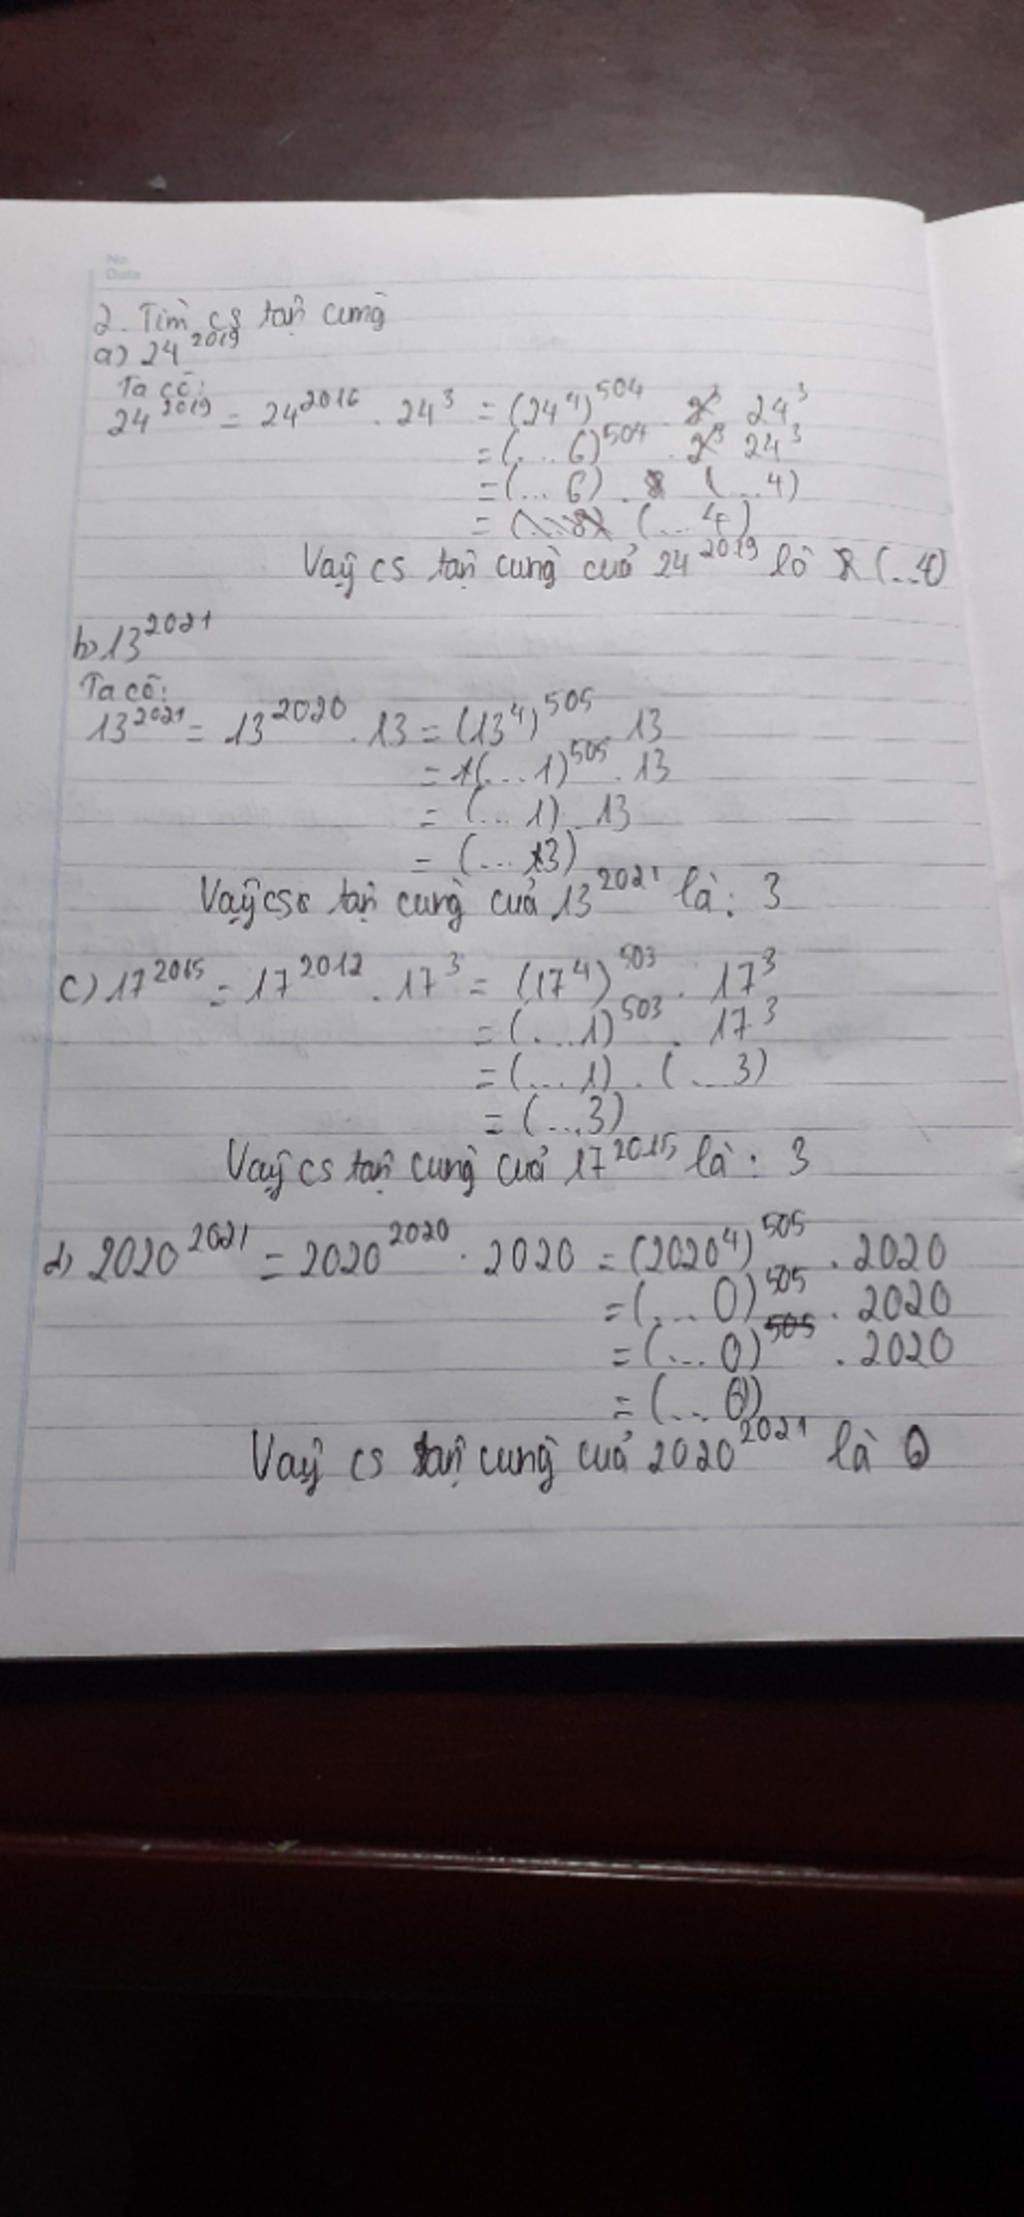 No
Date
2. Tìm cs tận cùng
a) 24^2019
Ta có:
24^2019 = 24^2016 . 24^3 = (24^4)^504 . 24^3
= (... 6)^504 . 24^3
= (... 6) . (... 4)
= (... 4)
Vậy cs tận cùng của 24^2019 là (...4)
b) 13^2021
Ta có:
13^2021 = 13^2020 . 13 = (13^4)^505 13
= (... 1)^505 . 13
= (... 1) . 13
= (... 3)
Vậy cs tận cùng của 13^2021 là: 3
c) 17^2015 = 17^2012 . 17^3 = (17^4)^503 . 17^3
= (... 1)^503 . 17^3
= (... 1) . (... 3)
= (...3)
Vậy cs tận cùng của 17^2015 là: 3
d) 2020^2021 = 2020^2020 . 2020 = (2020^4)^505 . 2020
= (... 0)^505 . 2020
= (... 0) . 2020
= (... 0)
Vậy cs tận cùng của 2020^2021 là 0